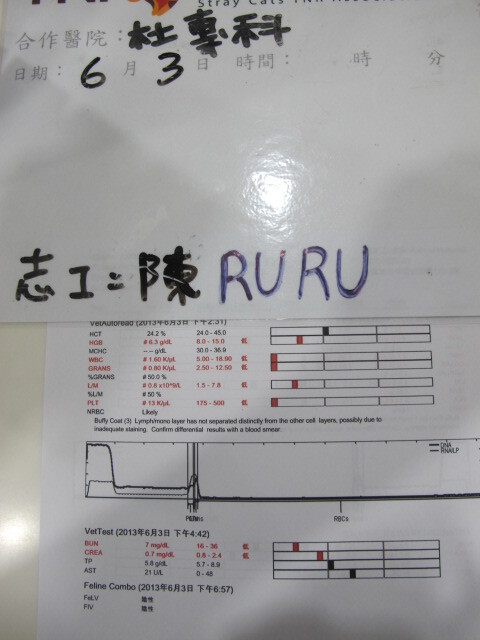 Stray Cats TNR Associat
合作醫院：杜專科
日期： 6 月 3 日 時間： 時 分
志工：陳 RURU
VetAutoread (2013年6月3日 下午2:31)
HCT 24.2 % 24.0 - 45.0
HGB # 6.3 g/dL 8.0 - 15.0 低
MCHC --.-- g/dL 30.0 - 36.9
WBC * 1.60 K/µL 5.00 - 18.90 低
GRANS # 0.80 K/µL 2.50 - 12.50 低
%GRANS # 50.0 %
L/M # 0.8 x10^9/L 1.5 - 7.8 低
%L/M # 50 %
PLT * 13 K/µL 175 - 500 低
NRBC Likely
Buffy Coat (3) Lymph/mono layer has not separated distinctly from the other cell layers, possibly due to
inadequate staining. Confirm differential results with a blood smear.
DNA
RNA/LP
RBCs
VetTest (2013年6月3日 下午4:42)
BUN 7 mg/dL 16 - 36 低
CREA 0.7 mg/dL 0.8 - 2.4 低
TP 5.8 g/dL 5.7 - 8.9
AST 21 U/L 0 - 48
Feline Combo (2013年6月3日 下午6:57)
FeLV 陰性
FIV 陰性